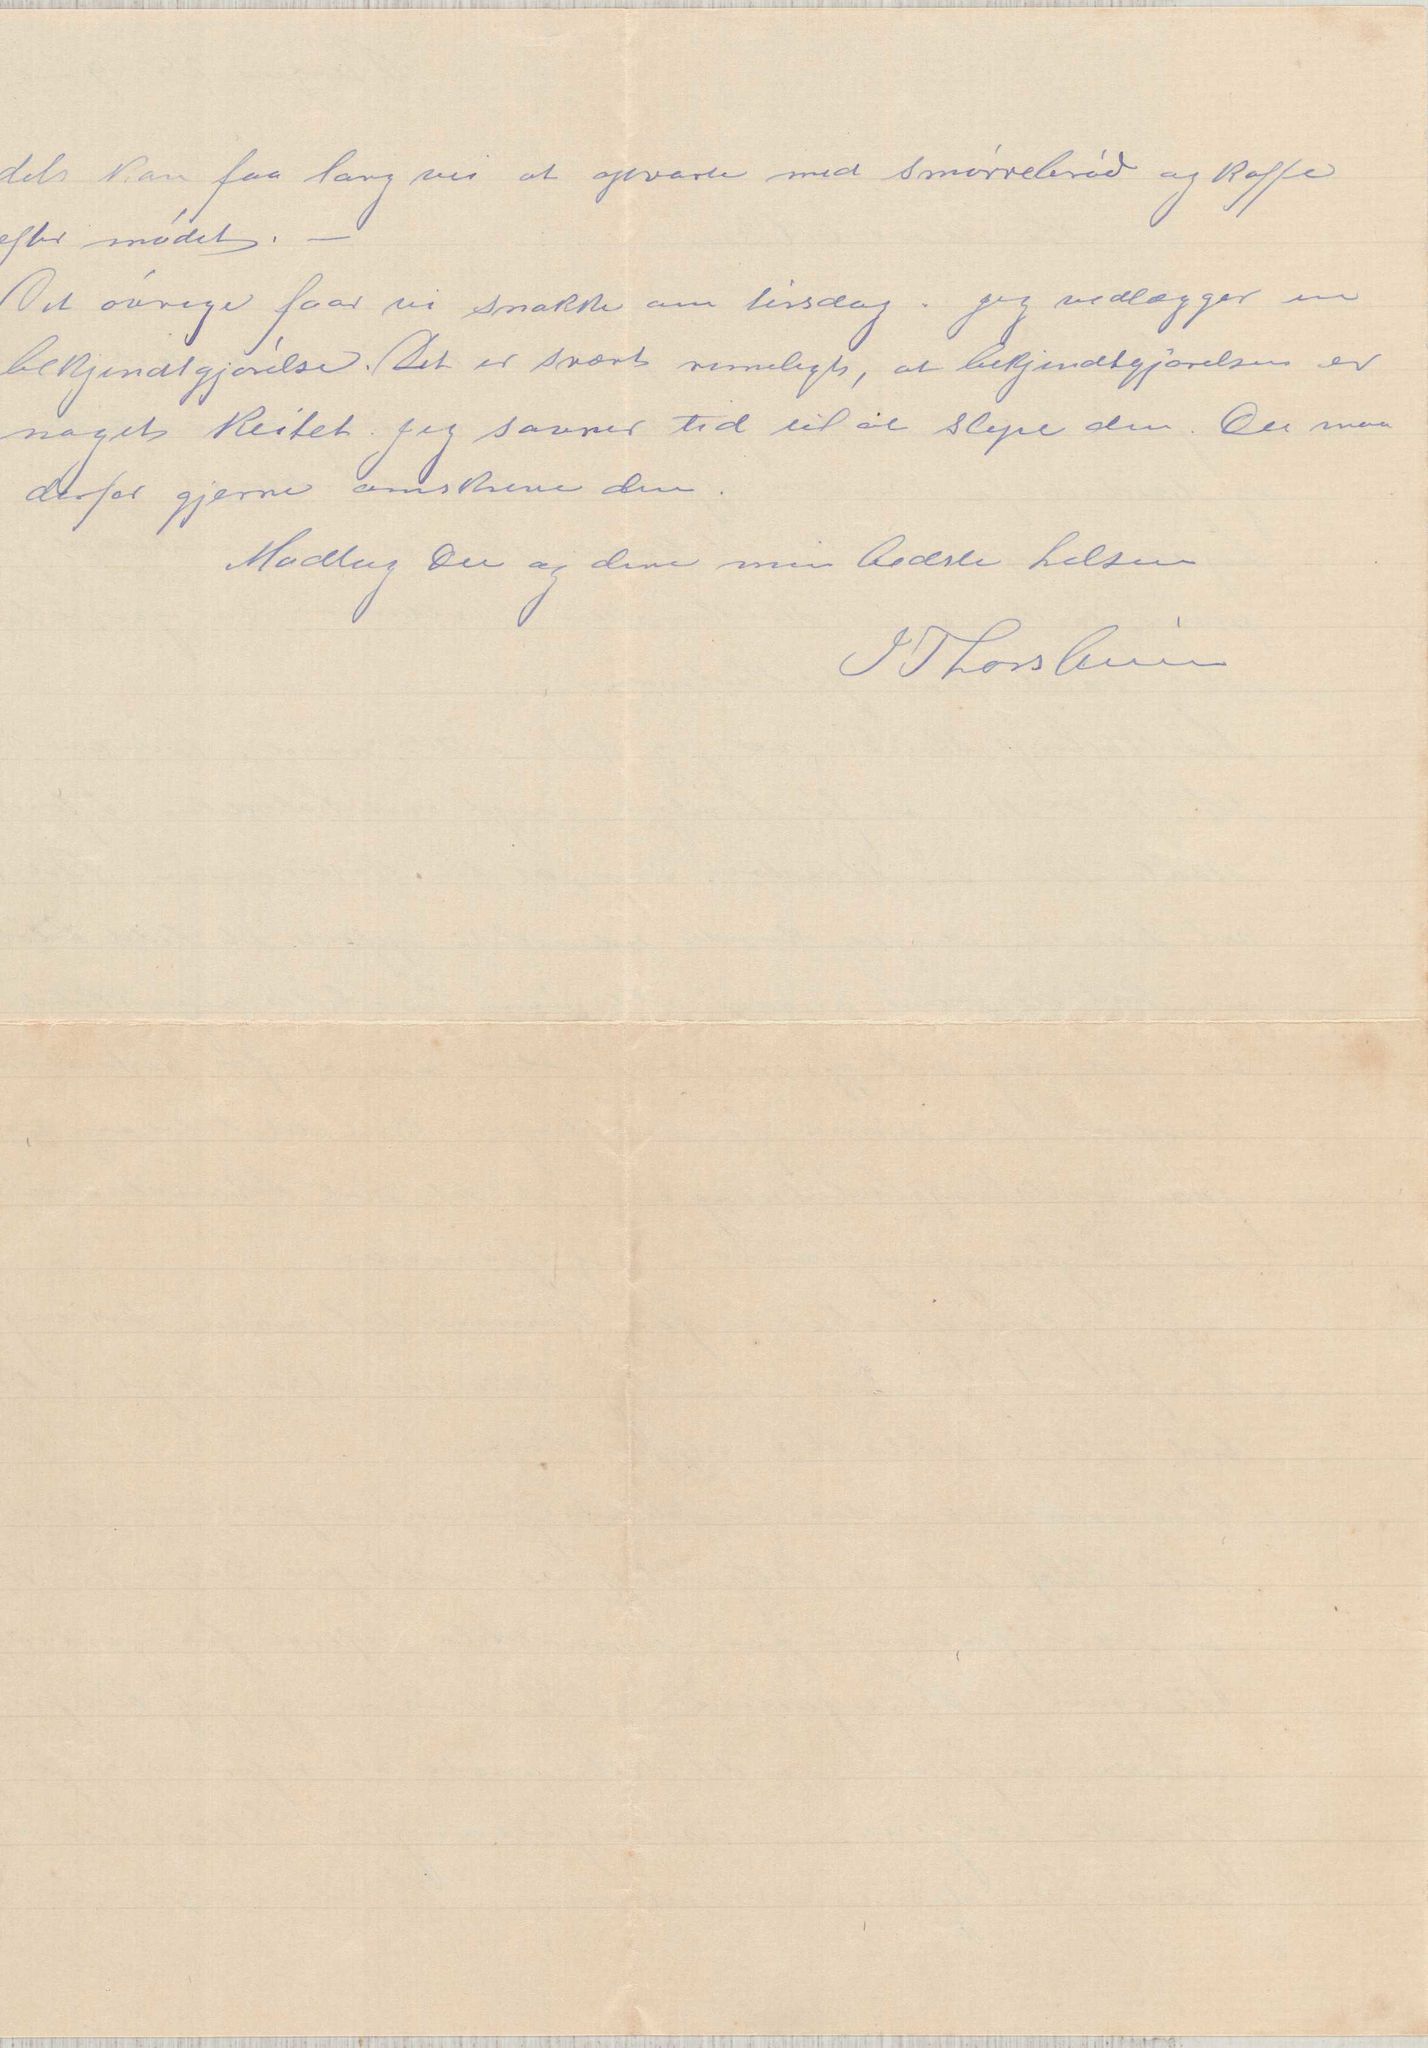 dels kan faa lang vei at opvarte med smørrebrød og kaffe
efter mødet. —
Det øvrige faar vi snakke om tirsdag. Jeg vedlægger en
bekjendtgjørelse. Det er svært rimeligt, at bekjendtgjørelsen er
noget keitet. Jeg savner tid til at slipe den. Du maa
derfor gjerne omskrive den.
Modtag Du og dine min bedste hilsen